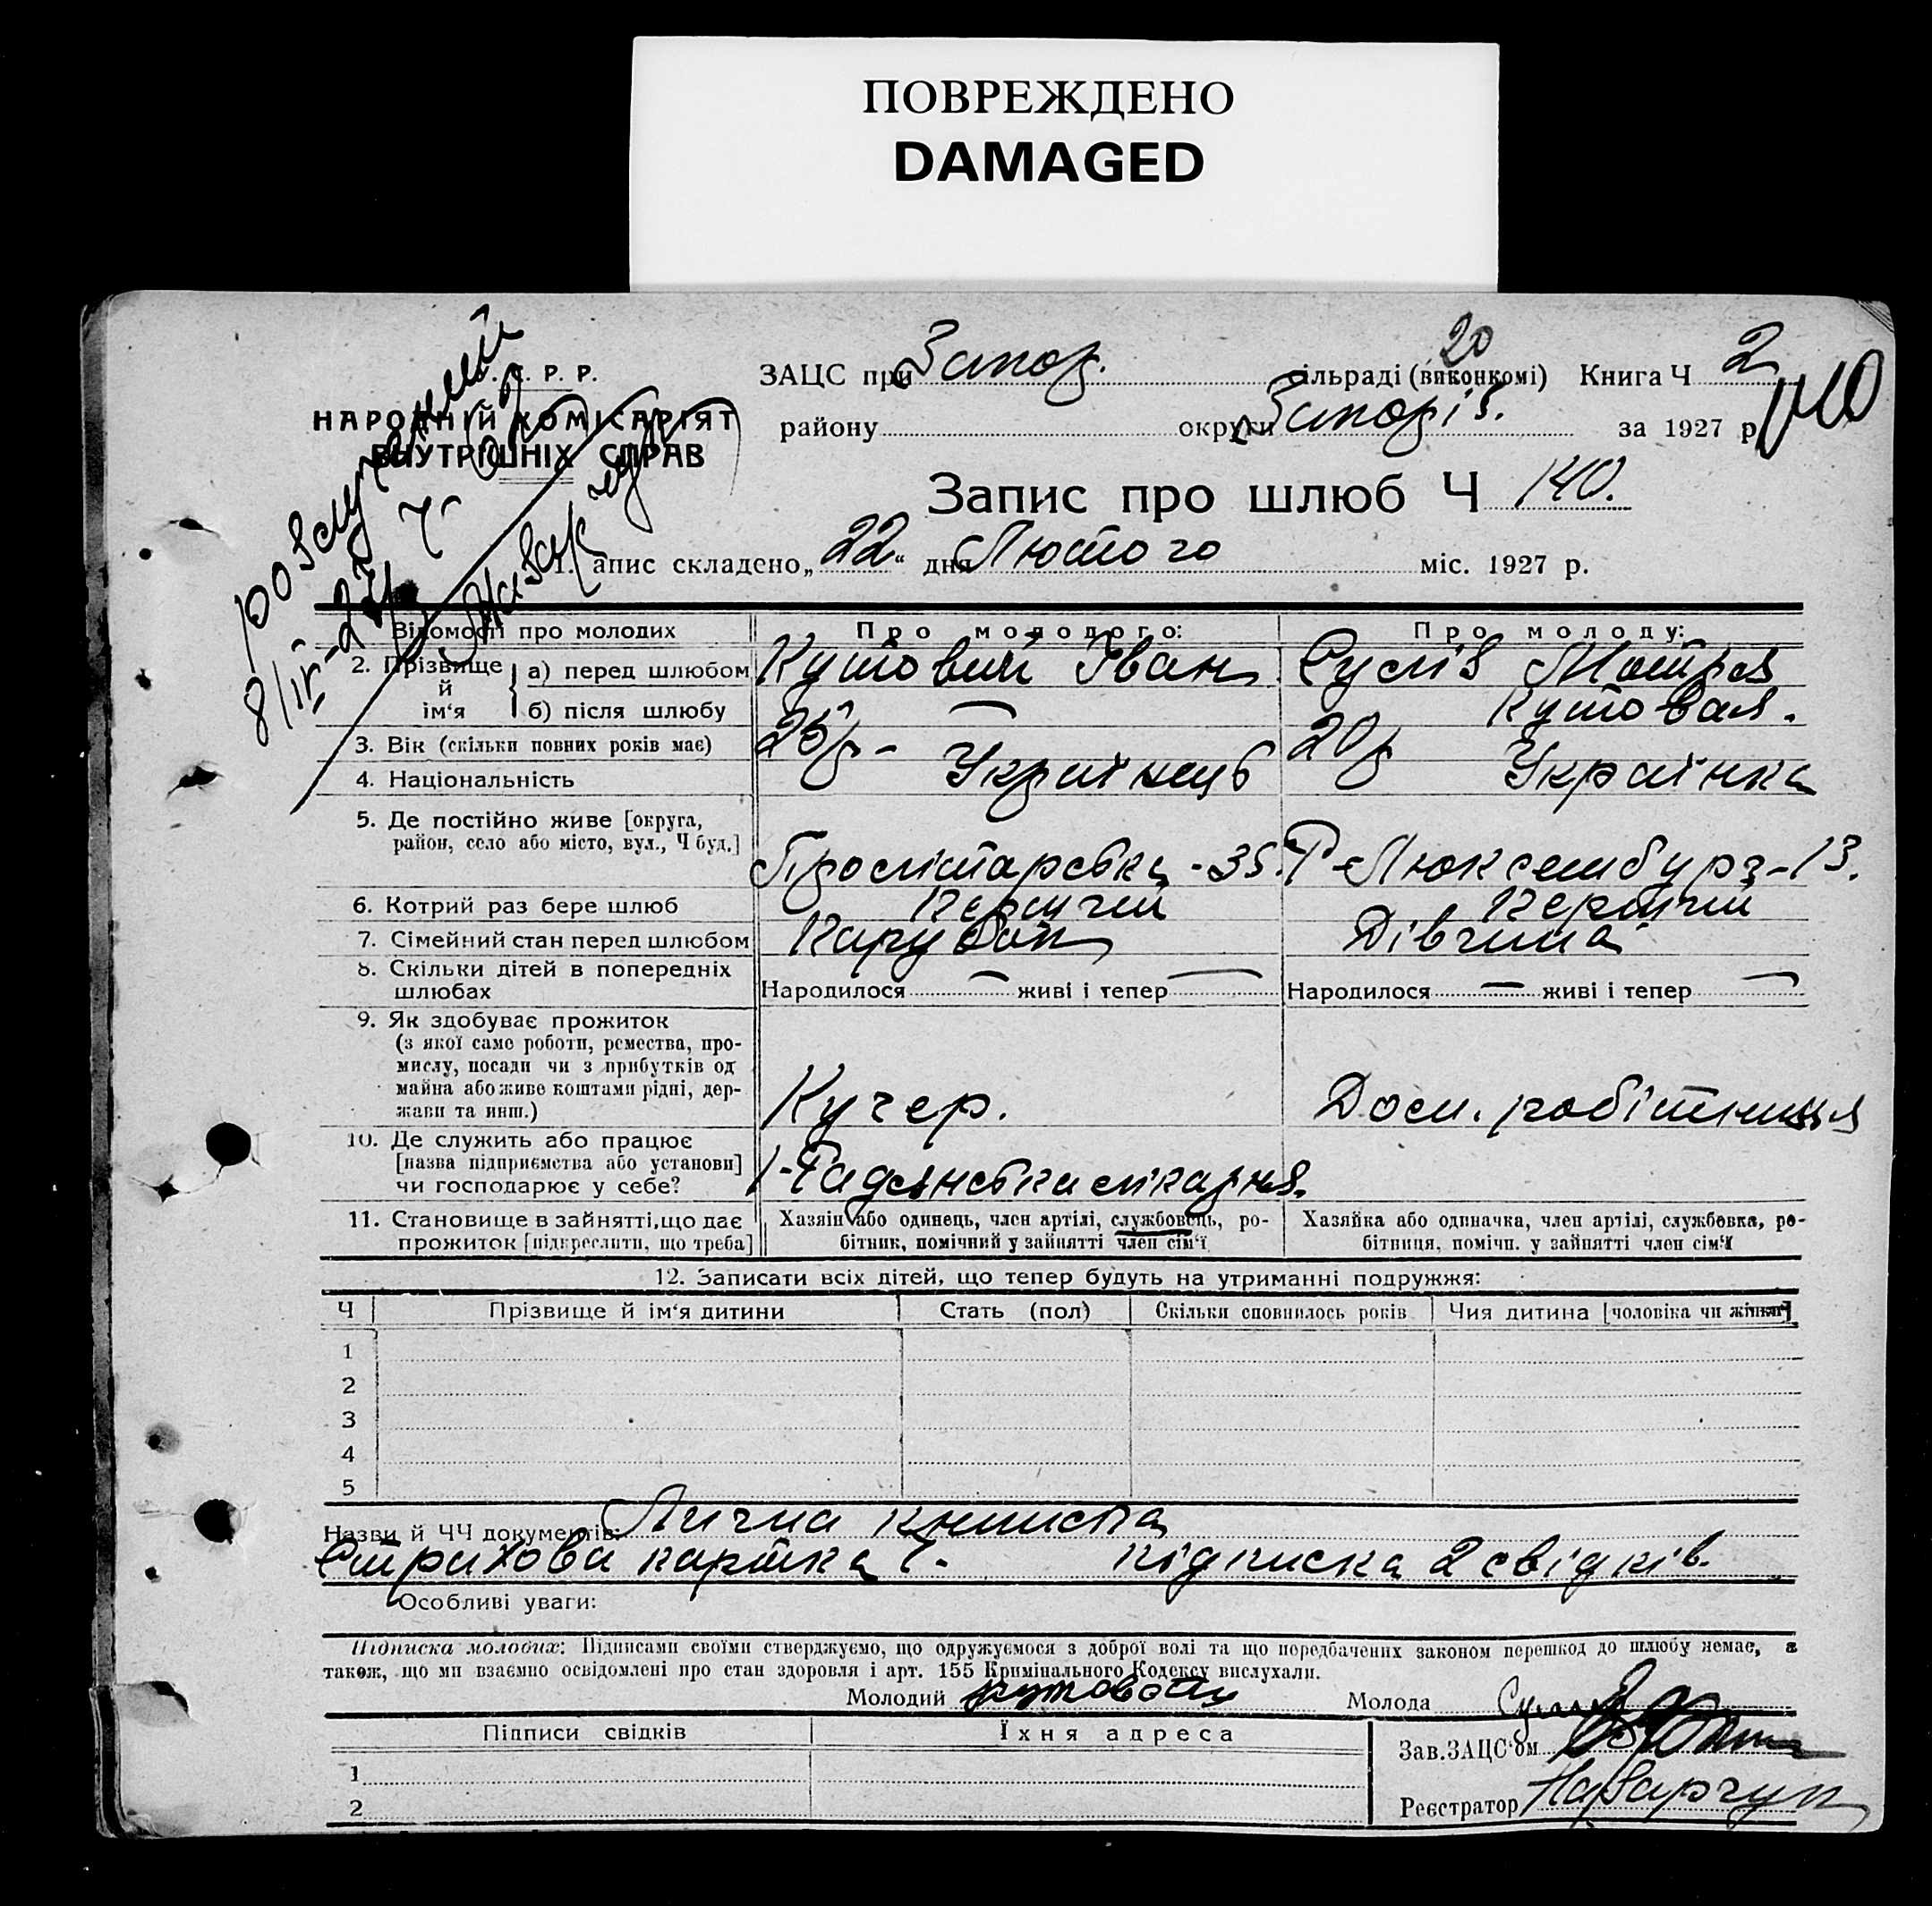 ПОВРЕЖДЕНО
DAMAGED
С. Р. Р.
НАРОДНІЙ КОМІСАРІЯТ
ВНУТРІШНІХ СПРАВ
ЗАЦС при Запор. сільраді (виконкомі) Книга Ч 2
20
району округи Запоріз. за 1927 р.
140
Запис про шлюб Ч 140.
1. Запис складено „22“ дня Лютого міс. 1927 р.
Відомості про молодих Про молодого: Про молоду:
2. Прізвище й ім‘я а) перед шлюбом Кутовий Іван Суслів Мотря
б) після шлюбу — Кутовая.
3. Вік (скільки повних років має) 20р
4. Національність Українець Українка
5. Де постійно живе [округа,
район, село або місто, вул., Ч буд.] Пролетарська - 35. Р Люксембург - 13.
6. Котрий раз бере шлюб Первичий Первичий
7. Сімейний стан перед шлюбом Парубок Дівчина
8. Скільки дітей в попередніх
шлюбах Народилося — живі і тепер — Народилося — живі і тепер —
9. Як здобуває прожиток
(з якої саме роботи, ремества, про-
мислу, посади чи з прибутків од
майна або живе коштами рідні, дер-
жави та инш.) Кучер. Дом. робітниця
10. Де служить або працює
[назва підприємства або установи]
чи господарює у себе? 1-Радянська лікарня.
11. Становище в зайнятті, що дає
прожиток [підкреслити, що треба]
Хазяїн або одинець, член артілі, службовець, ро-
бітник, помічний у зайнятті член сім‘ї
Хазяйка або одиначка, член артілі, службовка, ро-
бітниця, помічн. у зайнятті член сім‘ї
12. Записати всіх дітей, що тепер будуть на утриманні подружжя:
Ч Прізвище й ім‘я дитини Стать (пол) Скільки сповнилось років Чия дитина [чоловіка чи жінки]
1
2
3
4
5
Назви й ЧЧ документів: Лична книжка
Страхова картка підписка 2 свідків.
Особливі уваги:
Підписка молодих: Підписами своїми стверджуємо, що одружуємося з доброї волі та що передбачених законом перешкод до шлюбу немає, а
також, що ми взаємно освідомлені про стан здоровля і арт. 155 Кримінального Кодексу вислухали.
Молодий Молода
Підписи свідків Їхня адреса
Зав. ЗАЦС‘ом
1
2
Реєстратор Назарчук